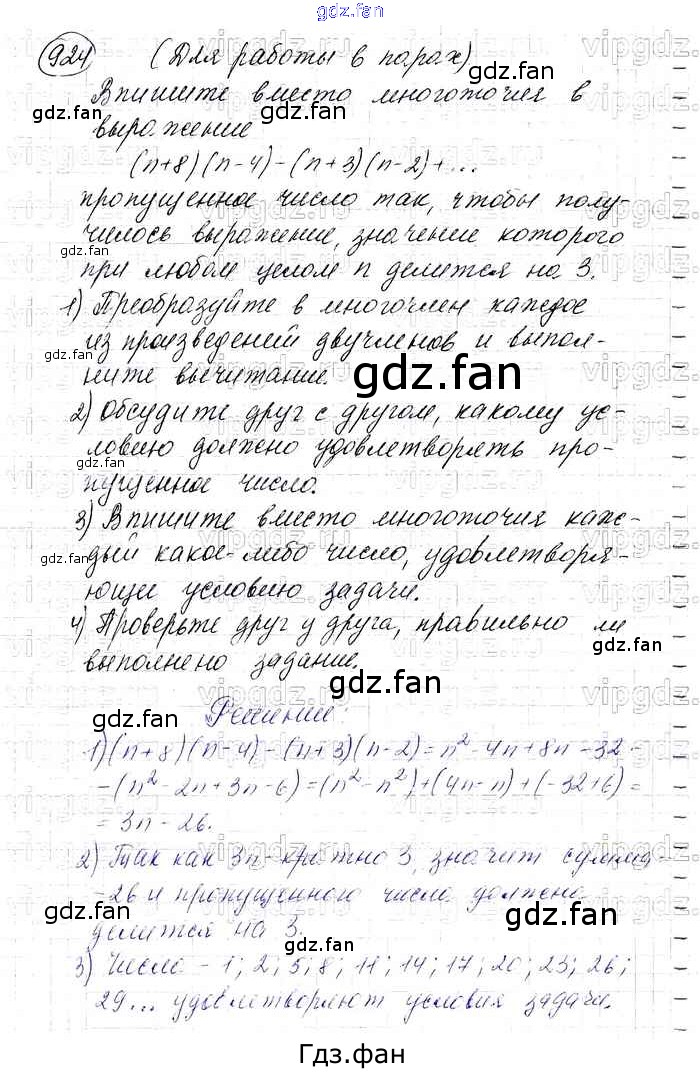 gdz.fan
924 (Для работы в парах)
gdz.fan
Впишите вместо многоточия в
gdz.fan
выражение
gdz.fan
(n+8)(n-4)-(n+3)(n-2)+...
пропущенное число так, чтобы полу-
чилось выражение, значение которого
при любом целом n делится на 3.
gdz.fan
1) Преобразуйте в многочлен каждое
из произведений двучленов и выпол-
ните вычитание.
gdz.fan
gdz.fan
2) Обсудите друг с другом, какому ус-
ловию должно удовлетворять про-
пущенное число.
gdz.fan
3) Впишите вместо многоточия каж-
дый какое-либо число, удовлетворя-
gdz.fan
ющее условию задачи.
4) Проверьте друг у друга, правильно ли
gdz.fan
выполнено задание.
gdz.fan
gdz.fan
Решение:
1)(n+8)(n-4)-(n+3)(n-2)=n²-4n+8n-32-
-(n²-2n+3n-6)=(n²-n²)+(4n-n)+(-32+6)=
=3n-26.
2) Так как 3n-кратно 3, значит сумма
-26 и пропущенного числа должна
gdz.fan
gdz.fan
делится на 3.
3) Число -1; 2; 5; 8; 11; 14; 17; 20; 23; 26;
29... удовлетворяют условия задачи.
Гдз.фан